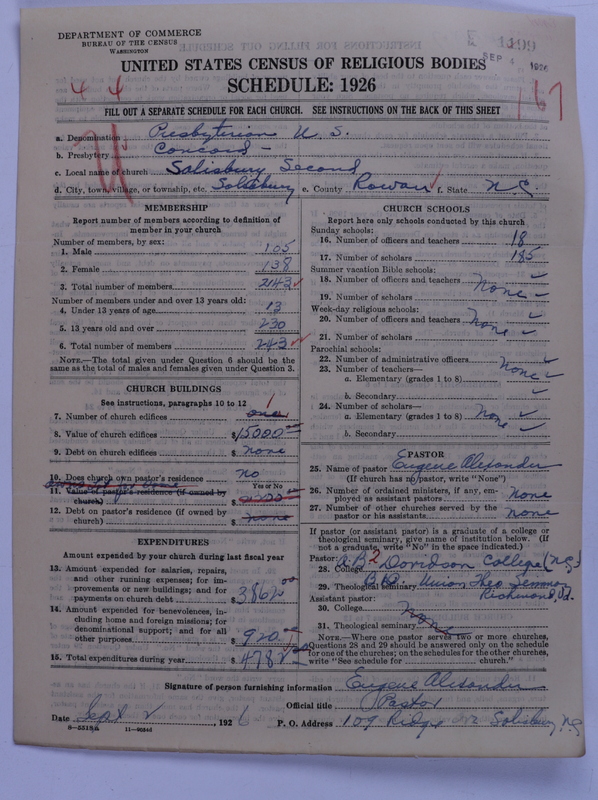 DEPARTMENT OF COMMERCE
BUREAU OF THE CENSUS
WASHINGTON
1199
SEP 4 1926
UNITED STATES CENSUS OF RELIGIOUS BODIES
SCHEDULE: 1926
4 4
167
FILL OUT A SEPARATE SCHEDULE FOR EACH CHURCH. SEE INSTRUCTIONS ON THE BACK OF THIS SHEET
a. Denomination Presbyterian U. S.
b. Presbytery Concord -
c. Local name of church Salisbury Second
d. City, town, village, or township, etc. Salisbury e. County Rowan f. State N.C.
MEMBERSHIP
Report number of members according to definition of
member in your church
Number of members, by sex:
1. Male 105
2. Female 138
3. Total number of members 243
Number of members under and over 13 years old:
4. Under 13 years of age 13
5. 13 years old and over 230
6. Total number of members 243
NOTE.—The total given under Question 6 should be the
same as the total of males and females given under Question 3.
CHURCH BUILDINGS
See instructions, paragraphs 10 to 12
7. Number of church edifices one 1
8. Value of church edifices $15000.00
9. Debt on church edifices $ none
10. Does church own pastor's residence no
Yes or No
11. Value of pastor's residence (if owned by
church) $
12. Debt on pastor's residence (if owned by
church) $ none
EXPENDITURES
Amount expended by your church during last fiscal year
13. Amount expended for salaries, repairs,
and other running expenses; for im-
provements or new buildings; and for
payments on church debt $3862.00
14. Amount expended for benevolences, in-
cluding home and foreign missions; for
denominational support; and for all
other purposes $920.
15. Total expenditures during year $4782
CHURCH SCHOOLS
Report here only schools conducted by this church
Sunday schools:
16. Number of officers and teachers 18
17. Number of scholars 185
Summer vacation Bible schools:
18. Number of officers and teachers
19. Number of scholars None
Week-day religious schools:
20. Number of officers and teachers
21. Number of scholars None
Parochial schools:
22. Number of administrative officers
23. Number of teachers— None
a. Elementary (grades 1 to 8)
b. Secondary
24. Number of scholars—
a. Elementary (grades 1 to 8) None
b. Secondary
PASTOR
25. Name of pastor Eugene Alexander
(If church has no pastor, write "None")
26. Number of ordained ministers, if any, em-
ployed as assistant pastors None
27. Number of other churches served by the
pastor or his assistants none
If pastor (or assistant pastor) is a graduate of a college or
theological seminary, give name of institution below. (If
not a graduate, write "No" in the space indicated.)
Pastor: A.B. 2
28. College Davidson College (N.C.)
29. Theological seminary B.D. Union Theo. Seminary
Richmond, Va.
Assistant pastor:
30. College None
31. Theological seminary
NOTE.—Where one pastor serves two or more churches,
Questions 28 and 29 should be answered only on the schedule
for one of the churches; on the schedules for the other churches,
write "See schedule for church."
Signature of person furnishing information Eugene Alexander
Official title Pastor
Date Sept 2, 1926 P. O. Address 109 Ridge Ave Salisbury, N.C.
8-5515a 11-9034d